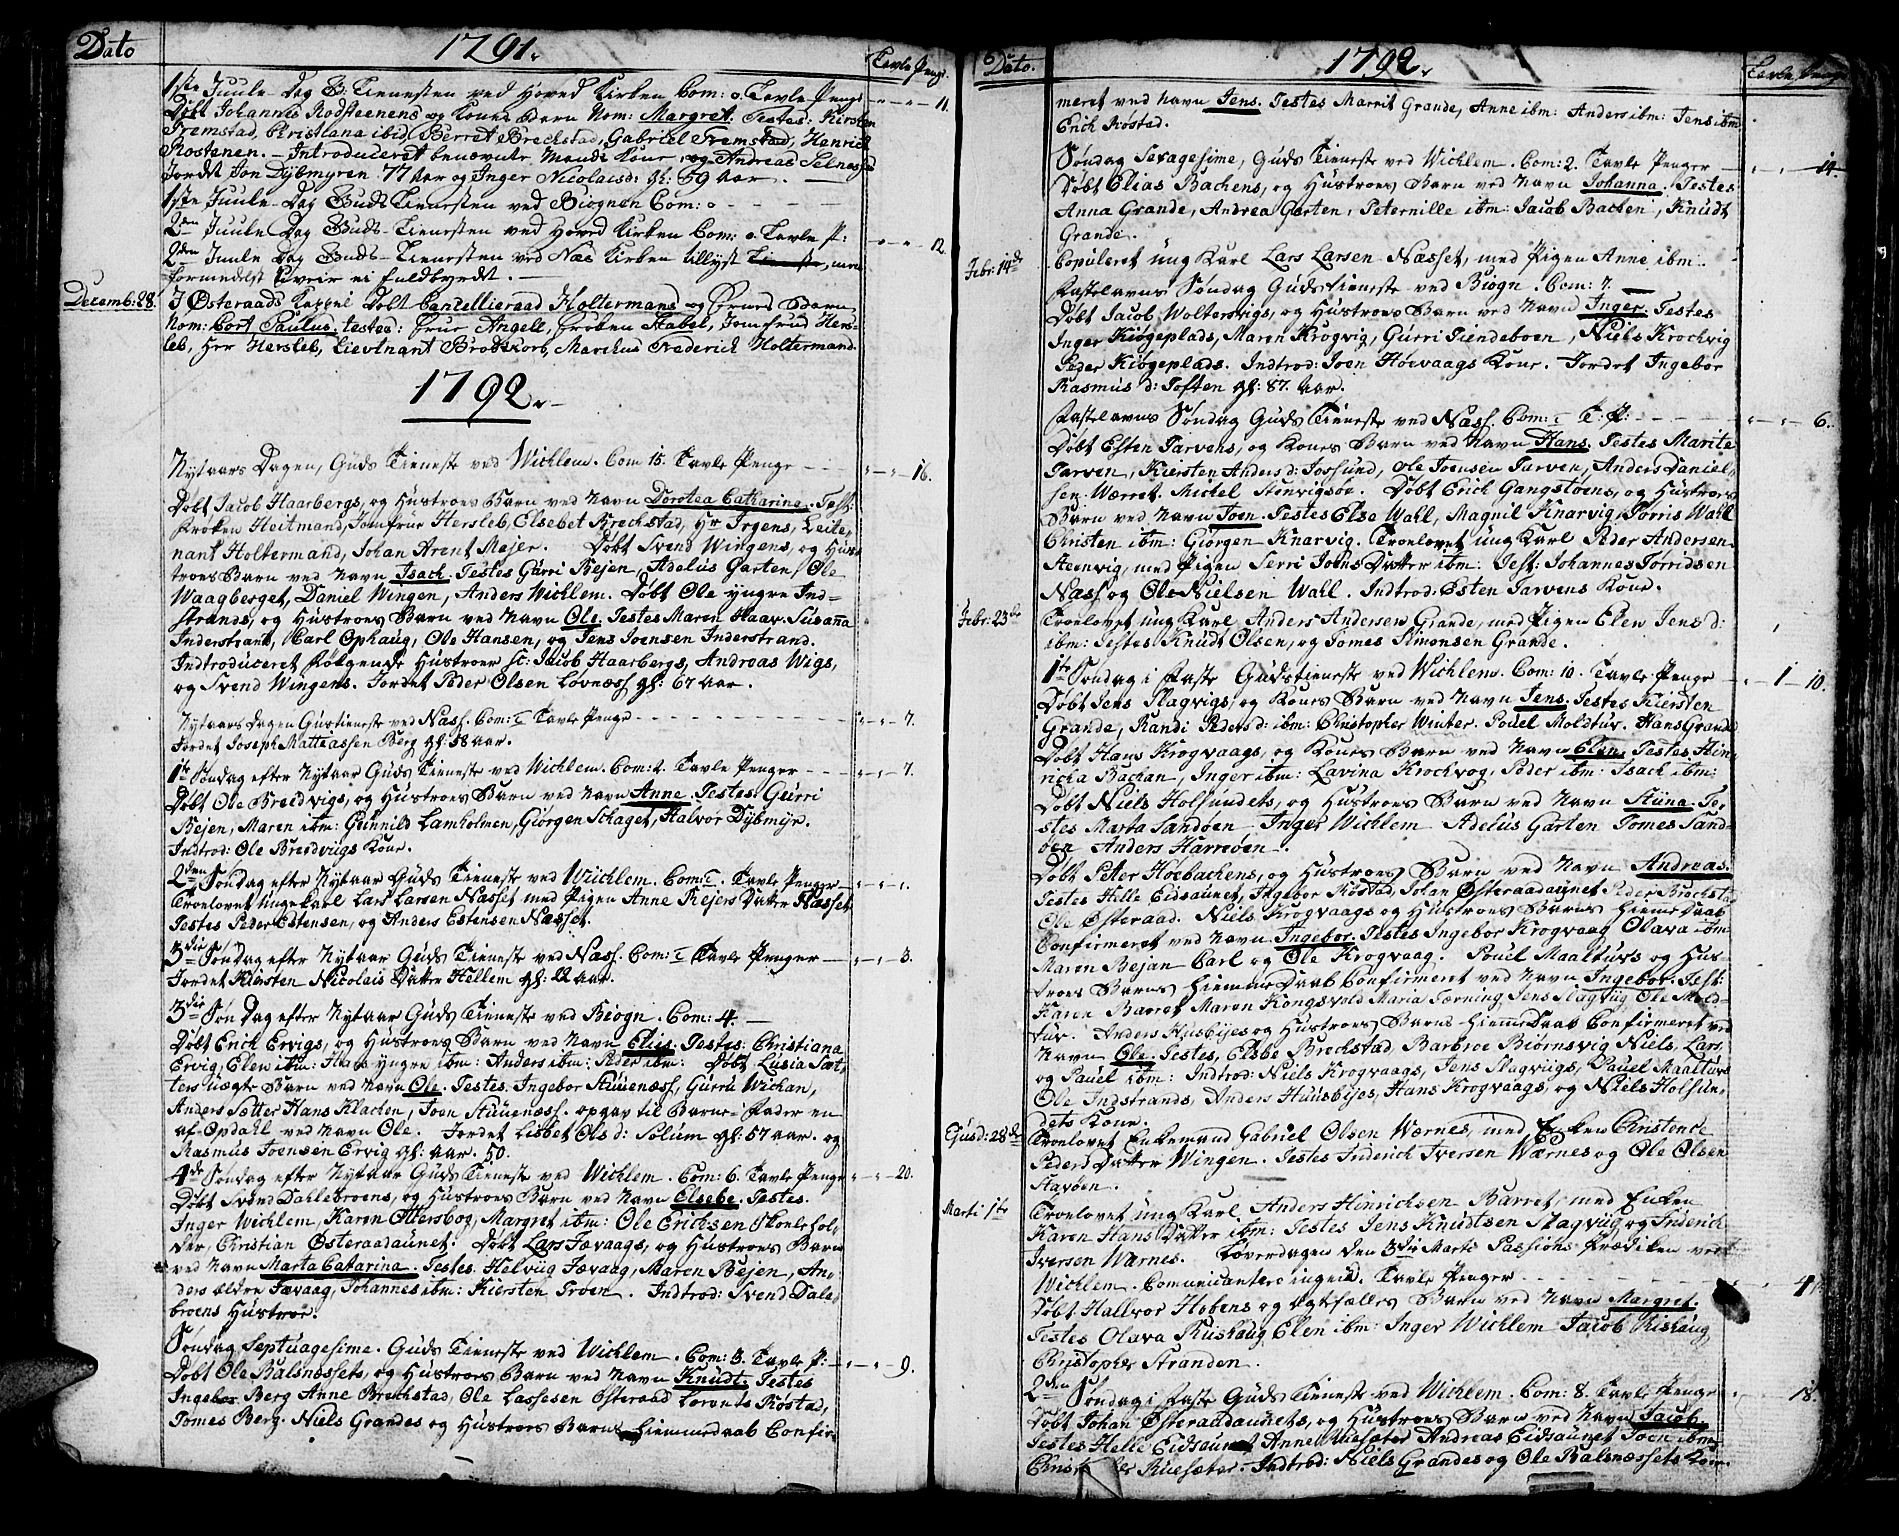 Dato 1791. Tavle Penge
1ste Juule-Dag G: Tienesten ved Hoved Kirken Com: 0. Tavle Penge - - 11.
Døbt Johannes Rodsteenens og Kones Børn Nom: Margret. Testes: Kirsten
Fremstad, Christiana ibid, Berret Brechstad, Gabriel Fremstad, Henrich
Rostenen. - Introduceret benævnte Mands Kone, og Andreas Selnæs
Jordet Jon Dybmyren 77 Aar og Inger Nicolaisd: gl: 59 Aar.
1ste Juule-Dag Guds Tienesten ved Biognen Com: 0 - - - -
2den Juule Dag Guds-Tienesten ved Hoved Kirken Com: 0. Tavle P: - - 12.
2den Juule Dag Guds-Tienesten ved Næs Kirken tillyst, men
formedelst Uveir ei fuldbyrdet. -
Decemb: 28. I Østeraads Kappel Døbt Cancellieraad Holtermans og Frues Barn
Nom: Cort Paulus. testes: Frue Angell, Frøken Stabel, Jomfrue Hers-
leb, Herr Hersleb, Lieutnant Brodtkorb, Marchus Frederich Holtermand.
1792.
Nytaars Dagen, Guds Tieneste ved Wichlem. Com 15. Tavle Penge - - 16.
Døbt Jacob Haarbergs, og Hustroes Barn ved Navn Dorotea Catharina. Test:
Frøken Heitmand, Jomfrue Hersleb, Elsebet Brechstad, Hr Irgens, Leite-
nant Holtermand, Johan Arent Mejer. Døbt Svend Wingens, og Hus-
troes Barn ved Navn Isach. Testes Gurri Bejen, Adelus Garten, Ole
Waagberget, Daniel Wingen, Anders Wichlem. Døbt Ole yngre Ind-
strands, og Hustroes Barn ved Navn Ole. Testes Maren Haar. Susanna
Inderstrand, Carl Ophaug, Ole Hansen, og Jens Joensen Inderstrand.
Indtroduceret følgende Hustroer sc: Jacob Haarbergs, Andreas Wigs,
og Svend Wingens. Jordet Peder Olsen Løvnæss gl: 67 Aar.
Nytaars Dagen Gustieneste ved Næss. Com: Tavle Penge - - 7.
Jordet Joseph Mattiassen Berg gl: 58 Aar.
1te Søndag efter Nytaar Guds Tieneste ved Wichlem. Com: 2. Tavle Penger - - 7.
Døbt Ole Bredvigs, og Hustroes Barn ved Navn Anne. Testes: Gurri
Bejen, Maren ibm: Gunnild Lamholmen, Giørgen Schaget, Halvor Dybmyr.
Indtrod: Ole Bredvigs Kone.
2den Søndag efter Nytaar Guds Tieneste ved Wichlem. Com: Tavle Penger - - 1.
Troelovet ungekarl Lars Larsen Næsset med Pigen Anne Rejers Datter Næsset
Testes Peder Estensen, og Anders Estensen Næsset.
3die Søndag efter Nytaar Guds Tieneste ved Næss. Com: Tavle Penger - - 3.
Jordet Kiersten Nicolais Datter Hellem gl: 22 Aar.
3die Søndag efter Nytaar Guds Tieneste ved Biogn. Com: 4. -
Døbt Erich Ervigs, og Hustroes Barn ved Navn Elies. Testes: Christiana
Ervig, Elen ibm: Hans yngre ibm: Anders ibm: Peder ibm: Døbt Lusia Sæt-
ters uægte Barn ved Navn Ole. Testes: Ingebor Stuuenæss, Gurru Wichan,
Anders Sætter Hans Klachen, Joen Stuuenæss. opgav til Barne-Fader en
af Opdahl ved Navn Ole. Jordet Lisbet Ols d: Solum gl: 57 Aar. og
Rasmus Joensen Ervig gl: Aar. 50.
4de Søndag efter Nytaar Guds Tieneste ved Wichlem. Com: 6. Tavle Penge - - 20.
Døbt Svend Dahlebroens, og Hustroes Barn ved Navn Elsebe. Testes.
Inger Wichlem, Karen Ottersbog, Margret ibm: Ole Erichsen Skoelehol-
der, Christian Østeraadaunet. Døbt Lars Fævaags, og Hustroes Barn
ved Navn Marta Catarina. Testes. Helvüg Fævaag, Maren Bejen, An-
ders ældre Fævaag, Johannes ibm: Kiersten Troen. Indtrod: Svend Dale-
broens Hustroe.
Søndag Septuagesime. Guds Tieneste ved Wichlem. Com: 3. Tavle P: - - 9.
Døbt Ole Balsnæssets, og Hustroes Barn ved Navn Knudt. Testes
Ingebor Berg Anne Brechstad, Ole Lassesen Østeraad Lorents Røstad,
Tomes Berg. Niels Grandes og Hustroes Barns Hiemmedaab Confir-
Dato. 1792. Tavle Penge
meret ved Navn Jens. Testes Marrit Grande, Anne ibm: Anders ibm: Jens ibm
Erich Røstad.
Søndag Sexagesime, Guds Tieneste ved Wichlem. Com: 2. Tavle Penger - - 14.
Døbt Elias Bachens, og Hustroes Barn ved Navn Johanna. Testes
Anna Grande, Andrea Garten, Peternille ibm: Jacob Bachen, Knudt
Grande.
Febr: 14de Copuleret ung Karl Lars Larsen Næsset, med Pigen Anne ibm.
Fastelavns Søndag Guds Tieneste ved Biogn. Com: 7. -
Døbt Jacob Woltersvigs, og Hustroes Barn ved Navn Inger. Testes
Inger Kiøgeplads, Maren Krogvig, Gurri Tiendeboen, Niels Krochvig
Peder Kiøgeplads. Indtrod: Joen Høevaags Kone. Jordet Ingebor
Rasmus d: Toften gl: 87. Aar.
Fastelavns Søndag Guds Tieneste ved Næss. Com: T: P: - - 6.
Døbt Esten Tarvens, og Kones Barn ved Navn Hans. Testes Marite
Tarven, Kiersten Anders d: Jossund, Ole Joensen Tarven, Anders Daniel-
sen Wærret. Michel Stenvigsøe. Døbt Erich Gangstøens, og Hustroes
Barn ved Navn Joen. Testes Else Wahl, Magnil Knarvig, Torris Wahl
Christen ibm: Giørgen Knarvig. Troelovet ung Karl Peder Andersen
Steenvig, med Pigen Serri Joens Datter ibm: Test: Johannes Torridsen
Næss og Ole Nielsen Wahl. Indtrod: Esten Tarvens Kone.
Febr: 23de Troelovet ung Karl Anders Andersen Grande, med Pigen Elen Jens d:
ibm: Testes Knudt Olsen, og Tomes Simonsen Grande.
1te Søndag i Faste Gudstieneste ved Wichlem. Com: 10. Tavle Penge - 1 - 10.
Døbt Jens Slagvigs, og Kones Barn ved Navn Jens. Testes Kiersten
Grande, Randi Peders d: ibm: Christopher Winter. Pouel Moldtuv. Hans Grande
Døbt Hans Krogvaags, og Kones Barn ved Navn Elen. Testes. Hen-
richa Bachan, Inger ibm: Lavina Krochvog, Peder ibm: Isach ibm:
Døbt Niels Holsundets, og Hustroes Barn ved Navn Stiina. Te-
stes Marta Sandøen, Inger Wichlem Adelus Garten Tomes Sand-
øen Anders Harreøen.
Døbt Peter Høebachens, og Hustroes Barn ved Navn Andreas.
Testes Helle Eidsaunet, Ingebor Røstad, Johan Østeraadaunet Peder Brechstad
Ole Østeraad. Niels Krogvaags og Hustroes Barns Hiemme Daab
Confirmeret ved Navn Ingebor. Testes Ingebor Krogvaag Olava ibm
Maren Bejan Carl og Ole Krogvaag. Pouel Maalturs og Hus-
troes Barns Hiemme Daab Confirmeret ved Navn Ingebor. Test:
Karen Barret Maren Kongsvold Maria Tærning Jens Slagviig Ole Mold-
tuv. Anders Husbyes og Hustroes Barns Hiemme Daab Confirmeret ved
Navn Ole. Testes, Elsbe Brechstad, Barbroe Biørnsvig Niels, Lars,
og Pauel ibm: Indtrod: Niels Krogvaags, Jens Slagviigs, Pauel Maalturs
Ole Indstrands, Anders Huusbyes, Hans Krogvaags, og Niels Holsun-
dets Kone.
Ejusd: 28de Troelovet Enkemand Gabriel Olsen Wærnes, med Enken Christence
Peders Datter Wingen. Testes Friderich Iversen Wærnes og Ole Olsen
Stavøen.
Marti 1te Troelovet ung Karl Anders Hinrichsen Barret, med Enken
Karen Hans Datter ibm: Testes Jens Knudtsen Slagviig og Friderich
Iversen Wærnes. Løverdagen den 3die Marts Passions Prædiken ved
Wichlem. Comunicantere ingen. Tavle Penger - - 4.
Døbt Hallvor Hobens og Ægtefælles Barn ved Navn Margret.
Testes Olava Riishaug Elen ibm: Inger Wichlem Jacob Rishaug,
Christopher Stranden.
2den Søndag i Faste Guds Tieneste ved Wichlem. Com: 8. Tavle Penge - - 18.
Døbt Johan Østeraadaunets, og Hustroes Barn ved Navn Jacob.
Testes Helle Eidsaunet Anne Ruesæter Andreas Eidsaunet Joen ibm:
Ruesæter. Indtrod: Niels Grandes og Ole Balsnæssets Kone.